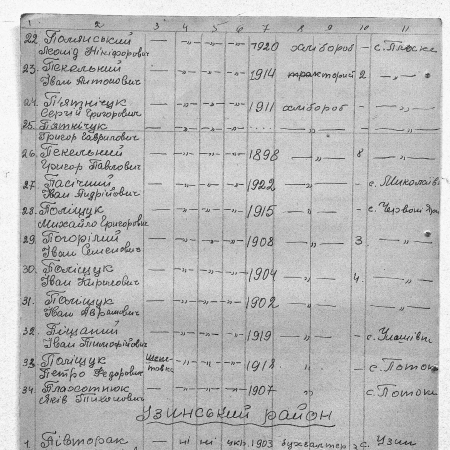 1 2 3 4 5 6 7 8 9 10 11
22. Полянський
Леонід Нікіфорович — " — " — " — 1920 хлібороб — с. Плоске
23. Пекельний
Іван Антонович — " — " — " — 1914 тракторист 2 — " —
24. П'ятнічук
Сергій Григорович — " — " — " — 1911 хлібороб — — " —
25. П'ятнічук
Григор Гаврилович — " — " — " — — " — — " —
26. Пекельний
Григор Павлович — " — " — " — 1898 — " — 8 — " —
27. Пасічний
Іван Андрійович — " — " — " — 1922 — " — — с. Миколаїв
28. Поліщук
Михайло Григорович — " — " — " — 1915 — " — — с. Червоний
29. Погорілий
Іван Семенович — " — " — " — 1908 — " — 3 — " —
30. Поліщук
Іван Кирилович — " — " — " — 1904 — " — 4 — " —
31. Поліщук
Іван Аврамович — " — " — " — 1902 — " — — " —
32. Піщаний
Іван Тимофійович — " — " — " — 1919 — " — — с.
33. Поліщук
Петро Федорович — " — " — " — 1918 — " — — с. Потоки
34. Плахотнюк
Яків Тихонович — " — " — " — 1907 " — с. Потоки
Узинський район
1. Півторак — ні ні укр. 1903 бухгалтер с. Узин